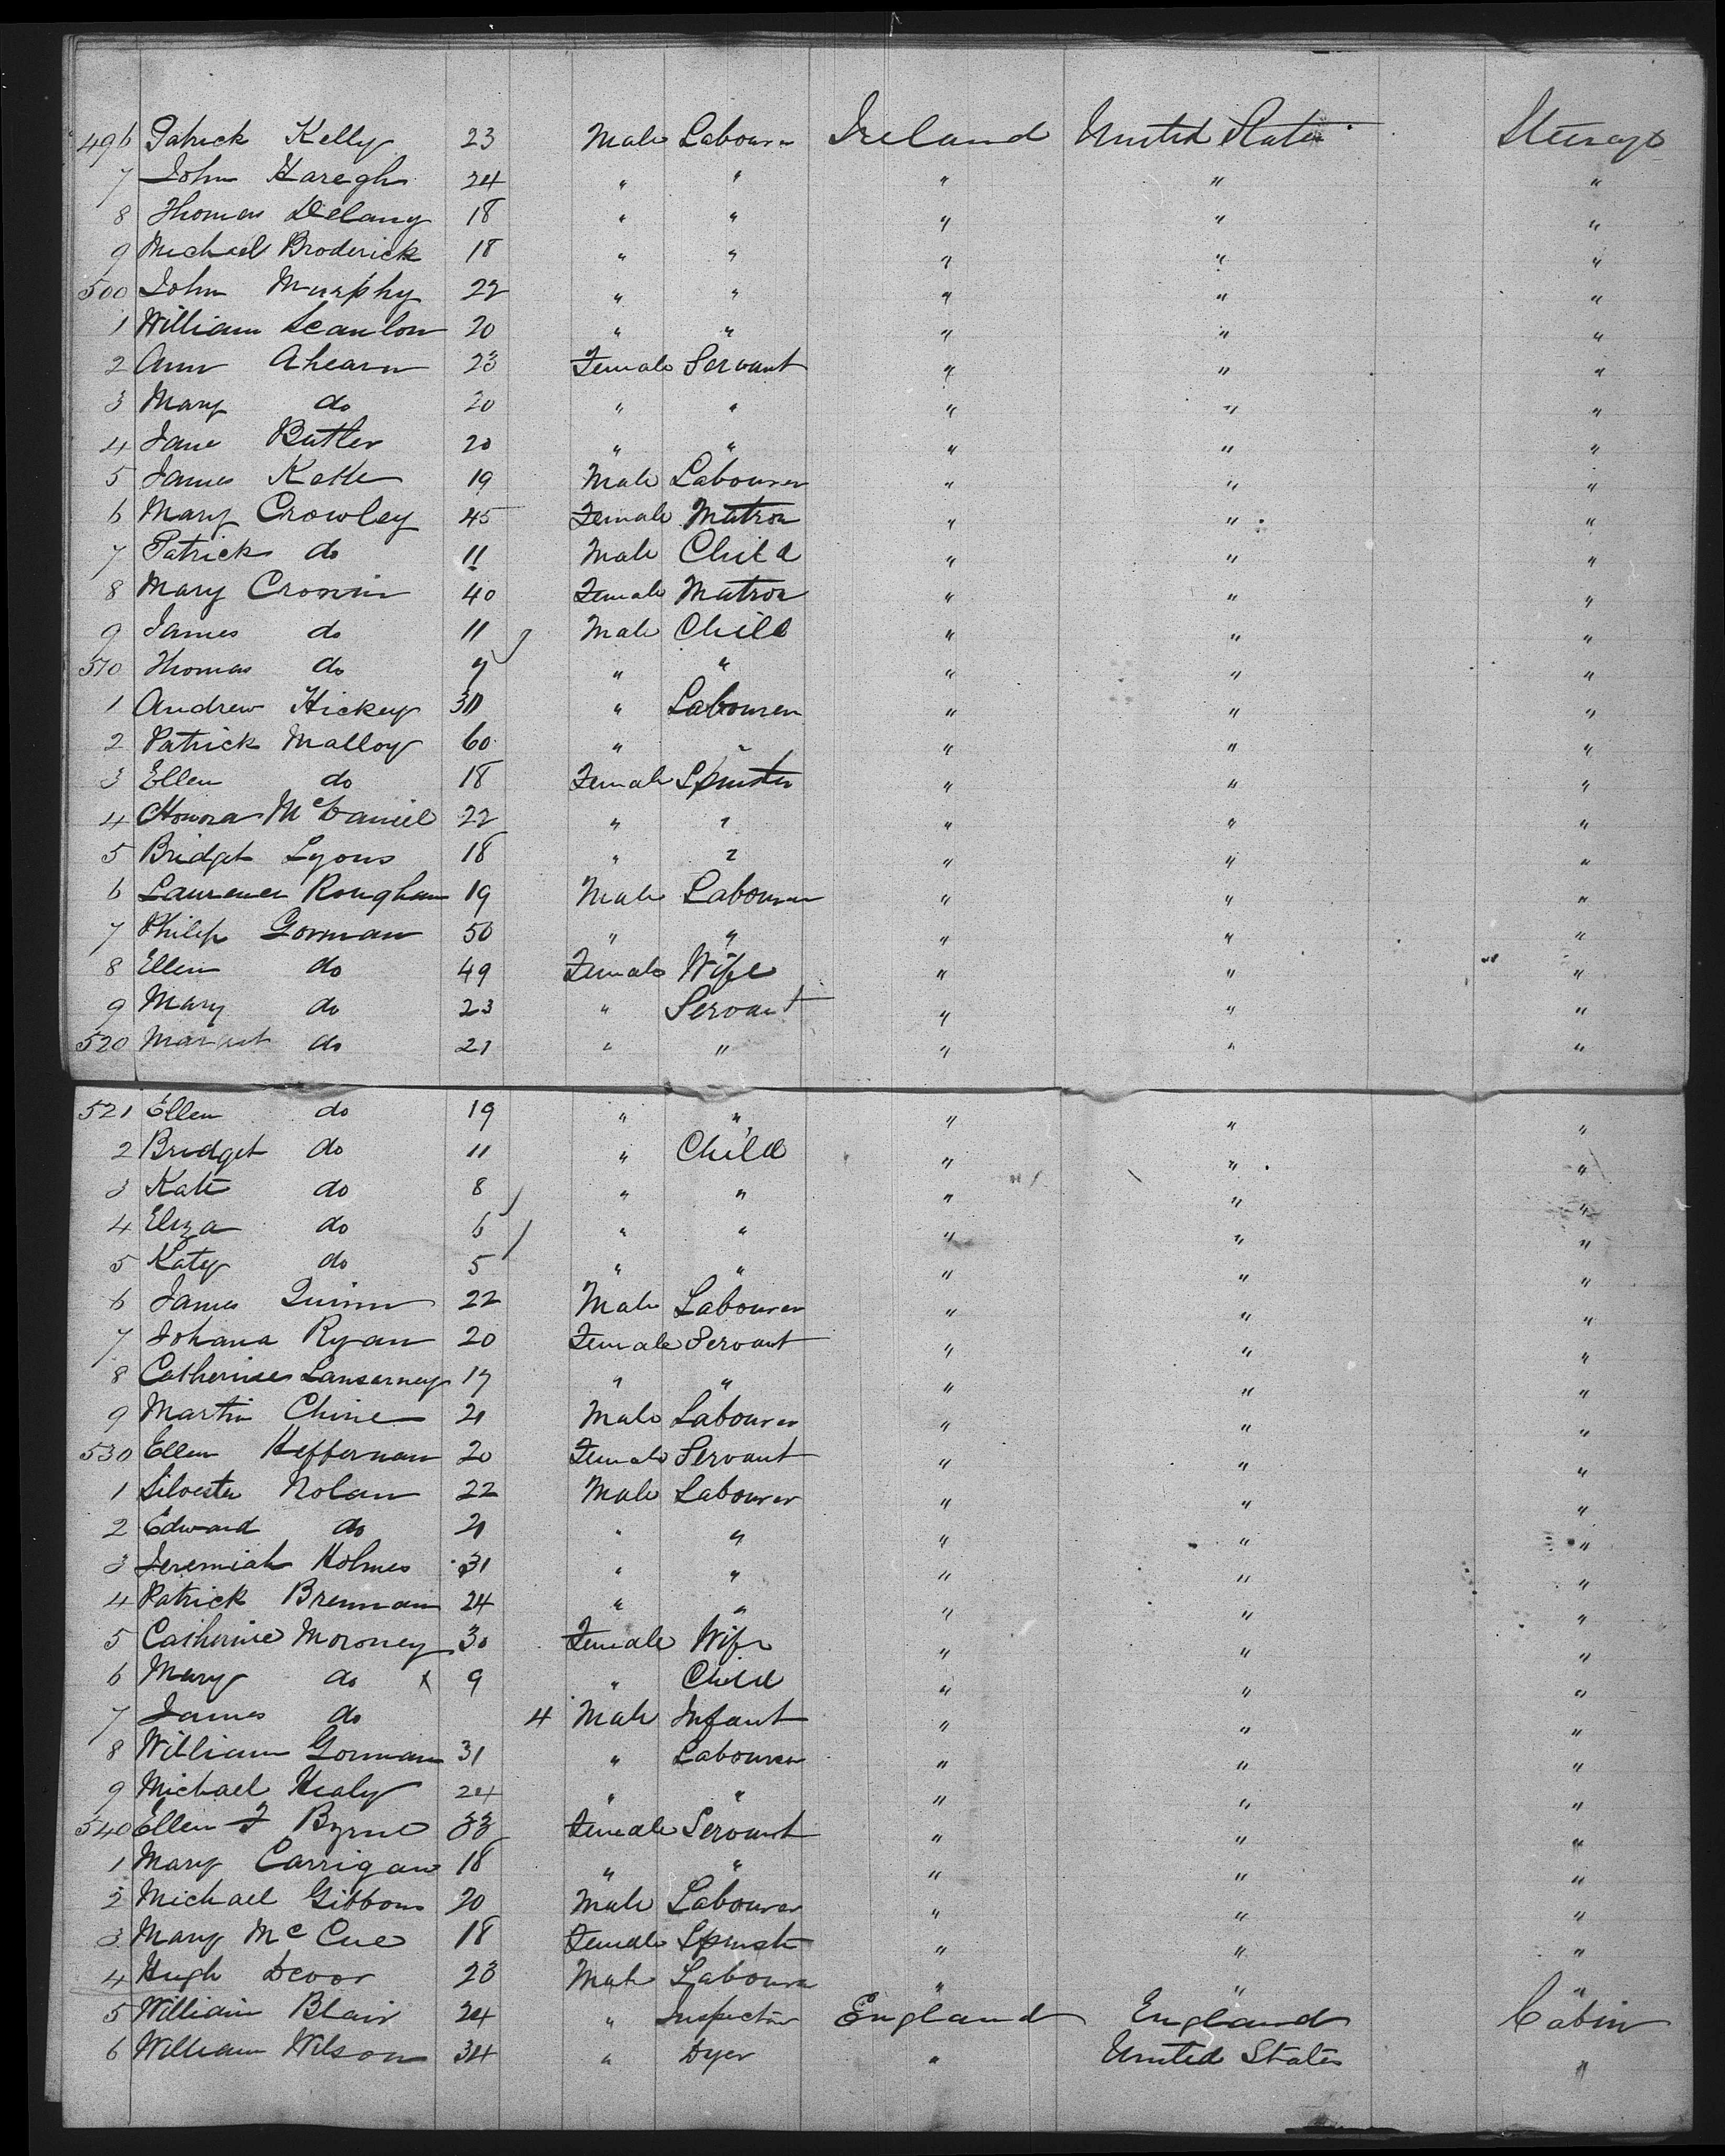 496 Patrick Kelly 23 Male Labourer Ireland United States Steerage
7 John Haregh 24 " " " " "
8 Thomas Delany 18 " " " " "
9 Michael Broderick 18 " " " " "
500 John Murphy 22 " " " " "
1 William Scanlon 20 " " " " "
2 Ann Ahearn 23 Female Servant " " "
3 Mary do 20 " " " " "
4 Jane Butler 20 " " " " "
5 James Katte 19 Male Labourer " " "
6 Mary Crowley 45 Female Matron " " "
7 Patrick do 11 Male Child " " "
8 Mary Cronin 40 Female Matron " " "
9 James do 11 Male Child " " "
510 Thomas do 9 " " " " "
1 Andrew Hickey 30 " Labourer " " "
2 Patrick Malloy 60 " " " " "
3 Ellen do 18 Female Spinster " " "
4 Honora McDaniel 22 " " " " "
5 Bridget Lyons 18 " " " " "
6 Laurence Roughan 19 Male Labourer " " "
7 Philip Gorman 50 " " " " "
8 Ellen do 49 Female Wife " " "
9 Mary do 23 " Servant " " "
520 Margret do 21 " " " " "
521 Ellen do 19 " " " " "
2 Bridget do 11 " Child " " "
3 Kate do 8 " " " " "
4 Eliza do 6 " " " " "
5 Katy do 5 " " " " "
6 James Quinn 22 Male Labourer " " "
7 Johana Ryan 20 Female Servant " " "
8 Catherine Lansarney 19 " " " " "
9 Martin Chine 21 Male Labourer " " "
530 Ellen Heffernan 20 Female Servant " " "
1 Silvester Nolan 22 Male Labourer " " "
2 Edward do 21 " " " " "
3 Jeremiah Holmes 31 " " " " "
4 Patrick Brennan 24 " " " " "
5 Catherine Moroney 30 Female Wife " " "
6 Mary do x 9 " Child " " "
7 James do 4 Male Infant " " "
8 William Gorman 31 " Labourer " " "
9 Michael Healy 24 " " " " "
540 Ellen F Byrne 33 Female Servant " " "
1 Mary Carrigan 18 " " " " "
2 Michael Gibbons 20 Male Labourer " " "
3 Mary McCue 18 Female Spinster " " "
4 Hugh Devor 23 Male Labourer " " "
5 William Blair 24 " Inspector England England Cabin
6 William Wilson 34 " Dyer " United States "